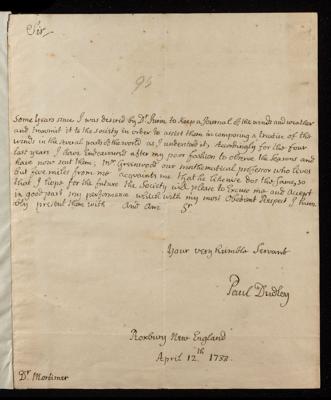 Sir
95
Some years since I was desired by Dr. Jurin to keep a Journal of the winds and weather
and transmit it to the Society in order to assist them in composing a treatise of the
winds in the several parts of the world as I understood it, accordingly for the four
last years I have Endeavoured after my poor fashion to observe the Seasons and
have now sent them; Mr. Greenwood our mathematical professor who lives
but five miles from me acquaints me that he likewise do's the same, so
that I hope for the future the Society will please to Excuse me and accept
in good part my performance which with my most Obedient Respect I hum.
bly present them with and am Sr.
Your very Humble Servant
Paul Dudley
Roxbury New England
April 12th 173
Dr. Mortimer